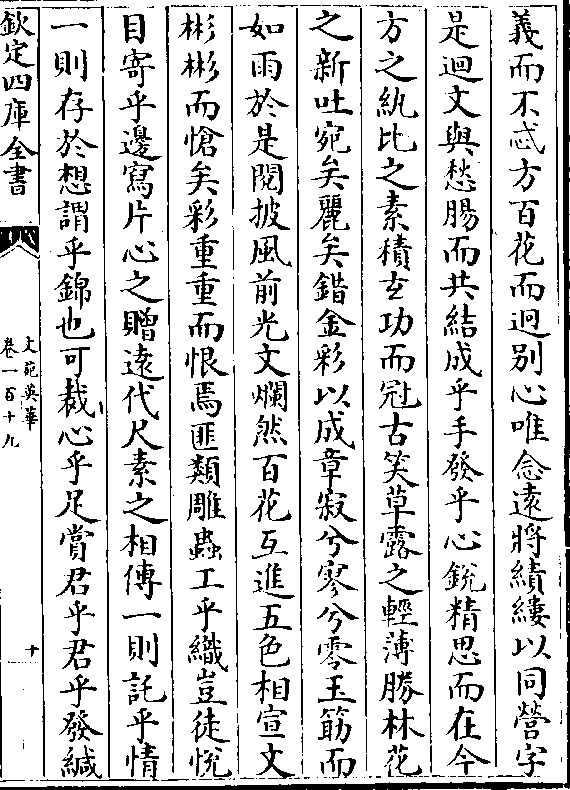 義而不忒方百花而迥別心唯念遠將績縷以同營字
是迴文與愁腸而共結成乎手發乎心銳精思而在今
方之紈比之素積玄功而冠古笑草露之輕薄勝林花
之新吐宛矣麗矣錯金彩以成章寂兮寥兮零玉筯而
如雨於是閱披風前光文爛然百花互進五色相宣文
彬彬而愴矣彩重重而恨焉匪類雕蟲工乎織豈徒悅
目寄乎邊寫片心之贈遠代尺素之相傳一則託乎情
一則存於想謂乎錦也可裁心乎足賞君乎君乎發緘
欽定四庫全書
文苑英華
卷一百十九
十